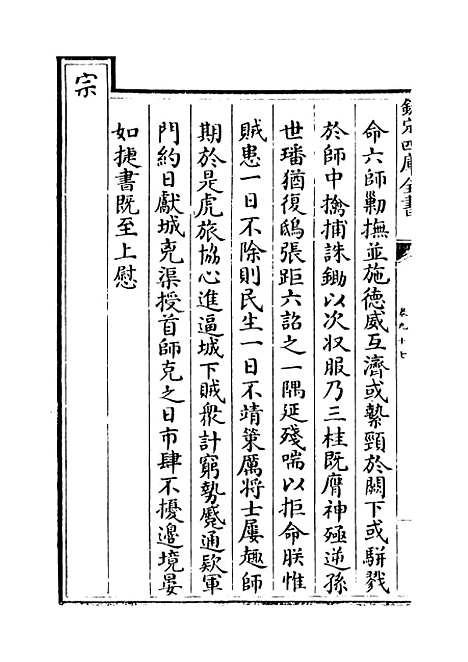 欽定四庫全書
卷九十七
命六師勦撫並施徳威互濟或縶頸於闕下或駢戮
於師中擒捕誅鋤以次収服乃三桂既膺神殛逆孫
世璠猶復鴟張距六詔之一隅延殘喘以拒命朕惟
賊患一日不除則民生一日不靖策厲将士屢趣師
期於是虎旅協心進逼城下賊衆計窮勢蹙通欵軍
門約日獻城克渠授首師克之日市肆不擾邊境晏
如捷書既至上慰
宗